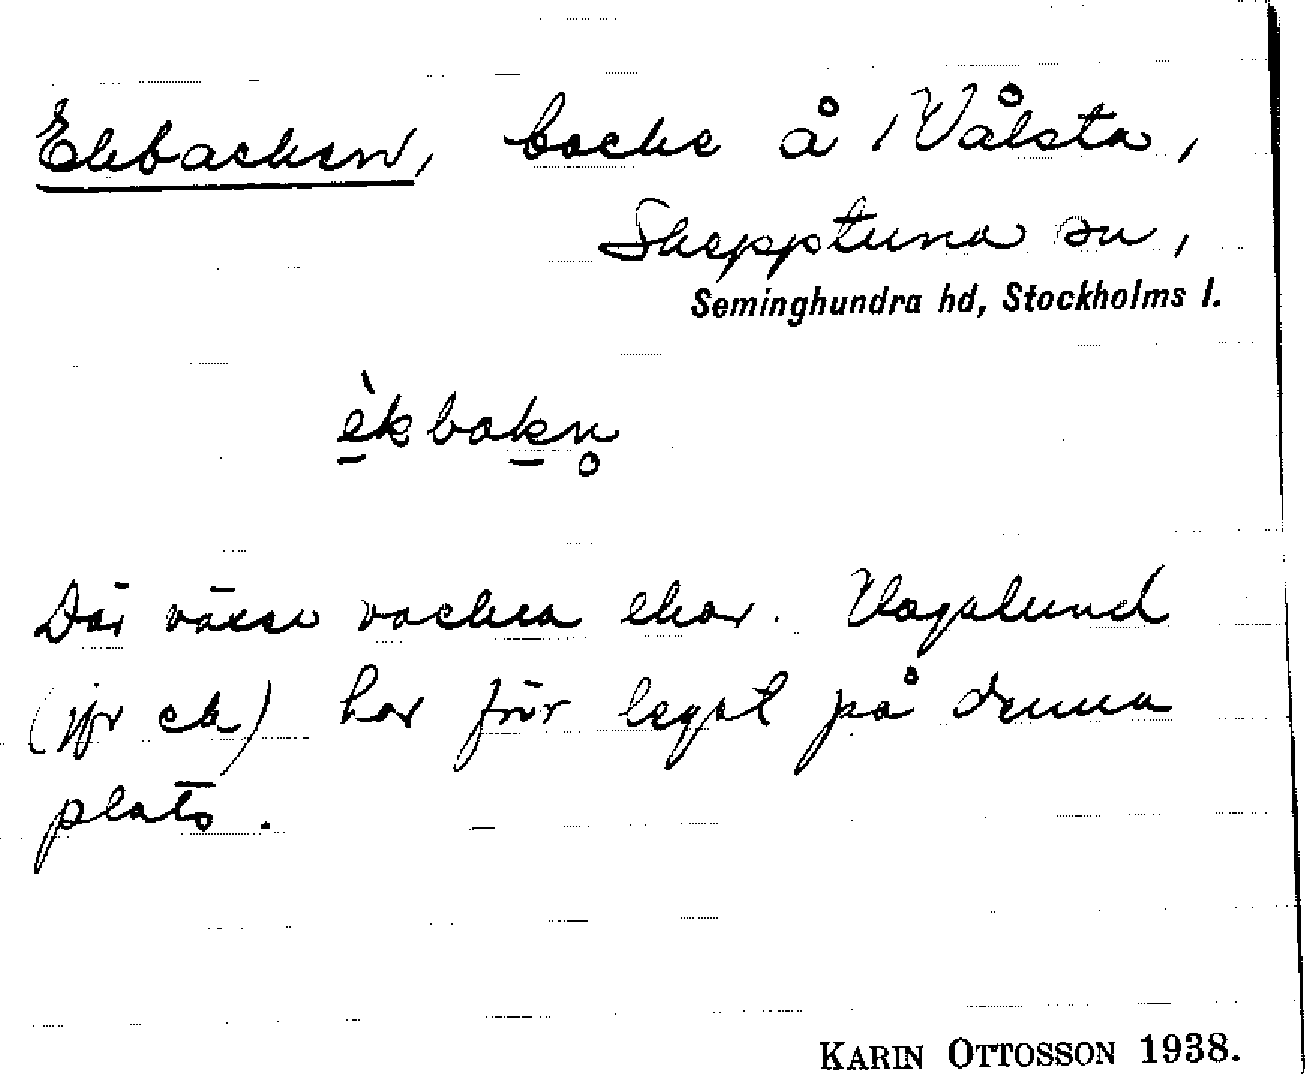 Ekbacken, backe å Vålsta,
Skepptuna sn,
Seminghundra hd, Stockholms l.
èkbakn̥
Där växer vackra ekar. Vagslund
(jfr ek) har förr legat på denna
plats.
KARIN OTTOSSON 1938.